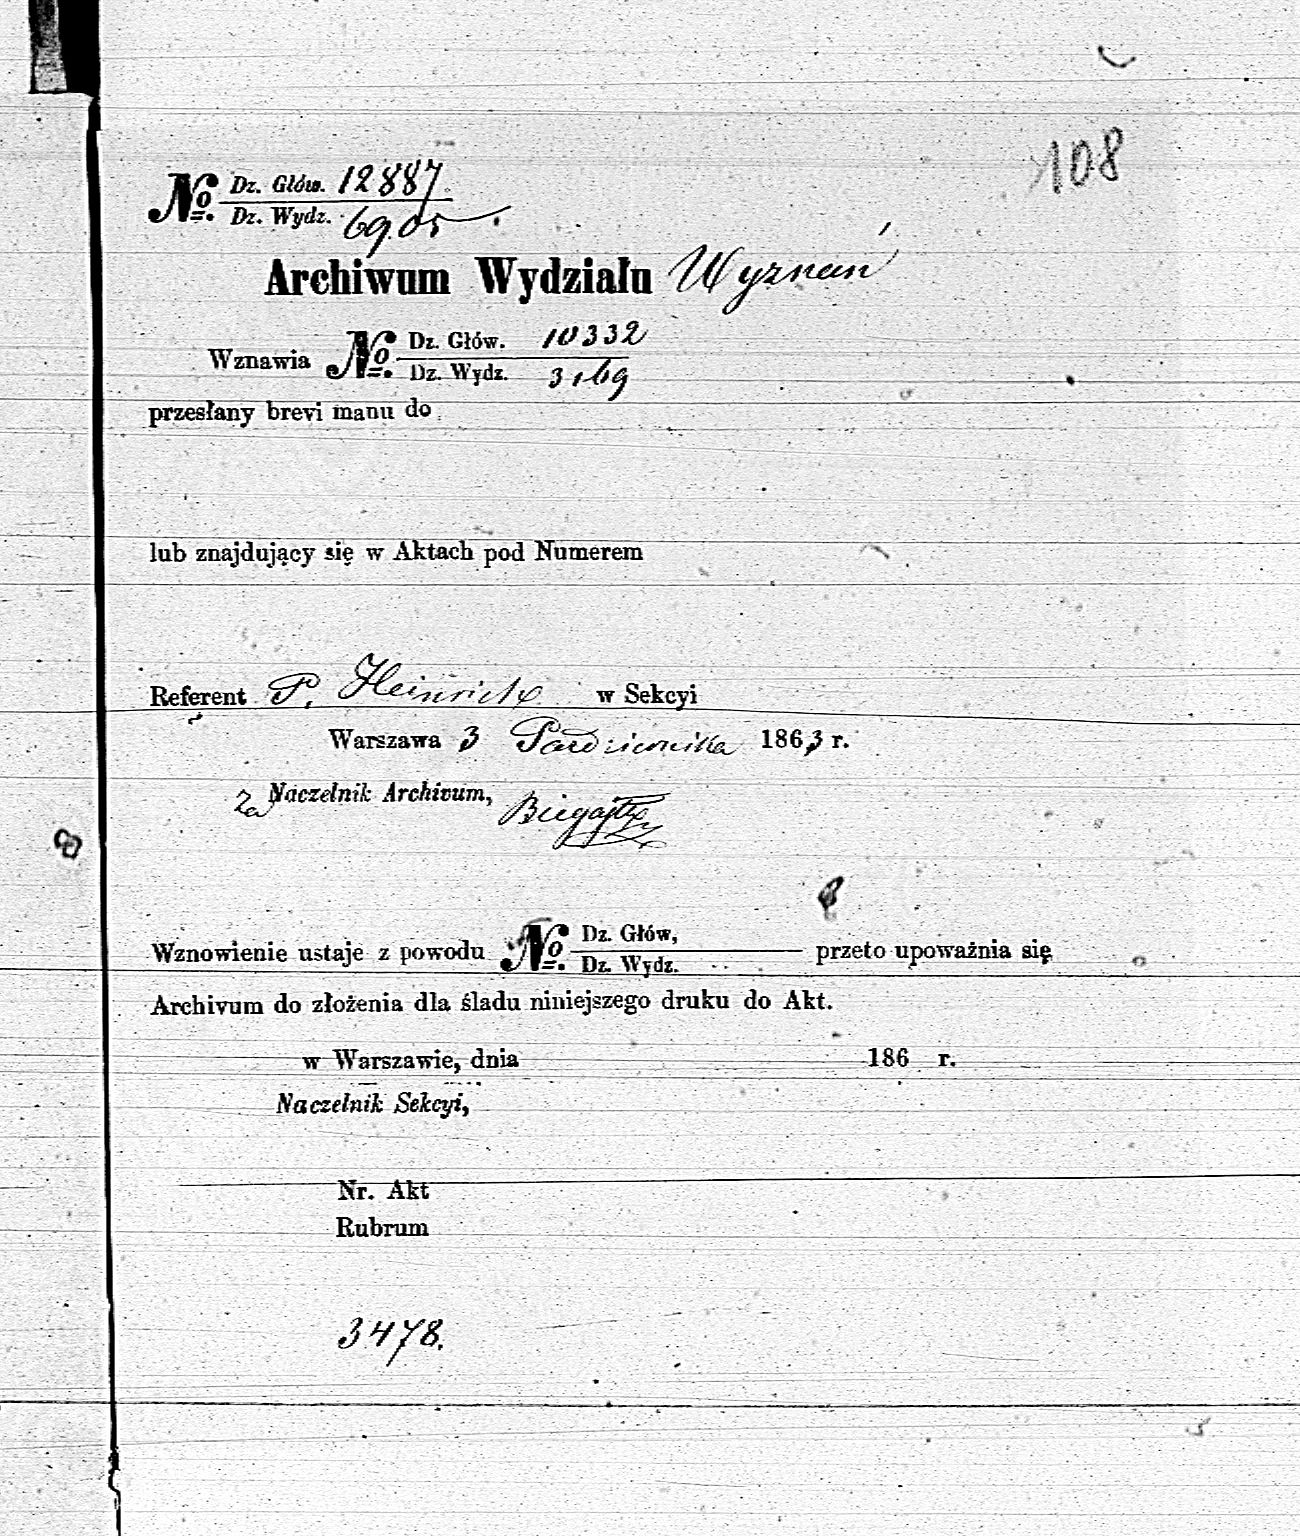 108
No. Dz. Głów. 12887
Dz. Wydz. 6905
Archiwum Wydziału Wyznań
Wznawia No. Dz. Głów. 10332
Dz. Wydz. 3169
przesłany brevi manu do
lub znajdujący się w Aktach pod Numerem
Referent P. Heinrich w Sekcyi
Warszawa 3 Października 1863 r.
Za Naczelnik Archivum,
Wznowienie ustaje z powodu No. Dz. Głów, przeto upoważnia się
Dz. Wydz.
Archivum do złożenia dla śladu niniejszego druku do Akt.
w Warszawie, dnia 186 r.
Naczelnik Sekcyi,
Nr. Akt
Rubrum
3478.